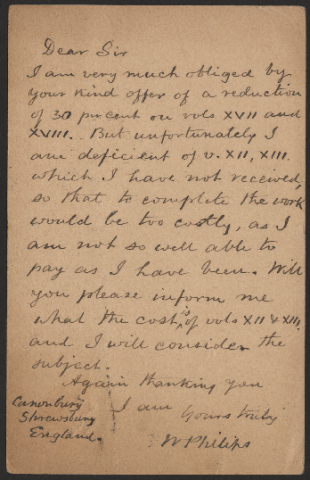 Dear Sir
I am very much obliged by
your kind offer of a reduction
of 30 percent on vols XVII and
XVIII. But unfortunately I
am deficient of v. XII, XIII.
which I have not received,
so that to complete the work
would be too costly, as I
am not so well able to
pay as I have been. Will
you please inform me
what the cost is of vols XII & XIII,
and I will consider the
subject.
Again thanking you
I am Yours truly
W Phillips
Canonbury
Shrewsbury
England.